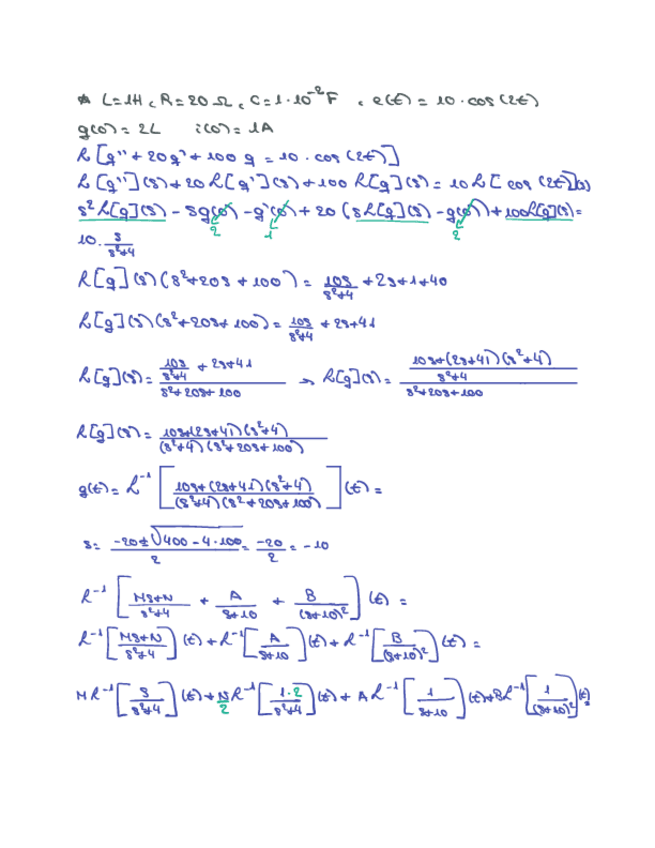 * L=1H, R=20 Ω, C=1·10⁻² F, e(t) = 10·cos(2t)
q(0)=2C i(0)=1A
L[q''+20q'+100q = 10·cos(2t)]
L[q''](s)+20L[q'](s)+100L[q](s)=10L[cos(2t)](s)
s²L[q](s) - sq(0) - q'(0) + 20(sL[q](s) - q(0)) + 100L[q](s) =
2 1 2
10· s/(s²+4)
L[q](s)(s²+20s+100) = 10s/(s²+4) + 2s+1+40
L[q](s)(s²+20s+100) = 10s/(s²+4) + 2s+41
L[q](s) = (10s/(s²+4) + 2s+41)/(s²+20s+100) → L[q](s) = ((10s+(2s+41)(s²+4))/(s²+4))/(s²+20s+100)
L[q](s) = (10s+(2s+41)(s²+4))/((s²+4)(s²+20s+100))
q(t) = L⁻¹[(10s+(2s+41)(s²+4))/((s²+4)(s²+20s+100))](t) =
s = (-20±√(400-4·100))/2 = -20/2 = -10
L⁻¹[(Ms+N)/(s²+4) + A/(s+10) + B/(s+10)²](t) =
L⁻¹[(Ms+N)/(s²+4)](t) + L⁻¹[A/(s+10)](t) + L⁻¹[B/(s+10)²](t) =
M L⁻¹[s/(s²+4)](t) + N/2 L⁻¹[1·2/(s²+4)](t) + A L⁻¹[1/(s+10)](t) + B L⁻¹[1/(s+10)²](t)